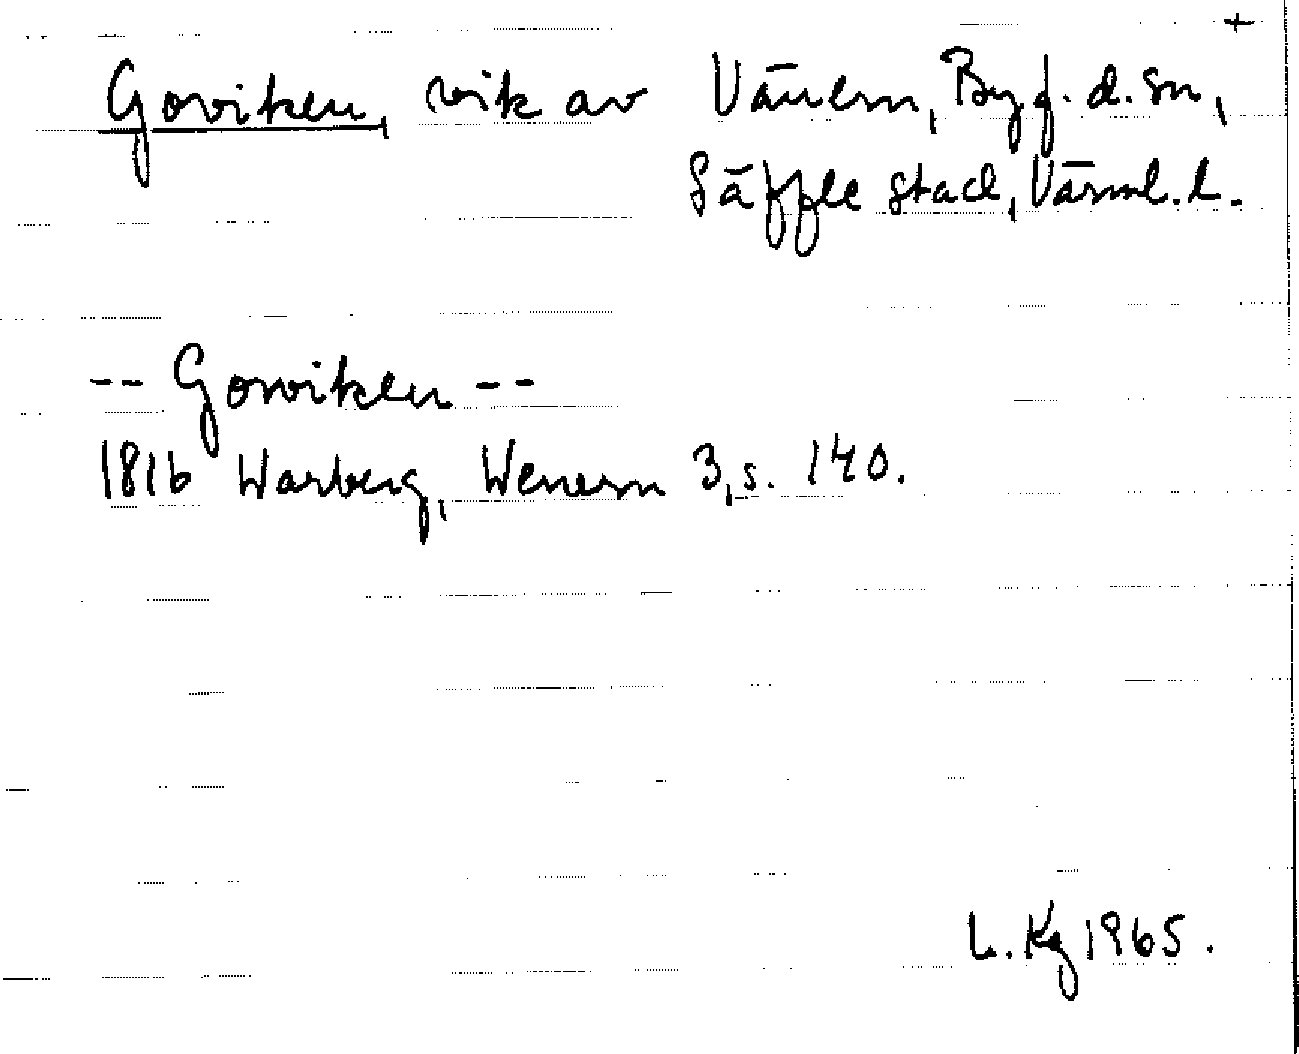 +
Goviken, vik av Vänern, By g.d. sn,
Säffle stad, Värml. l.
-- Gowiken --
1816 Warberg, Wenern 3, s. 140.
L. Kg 1965.